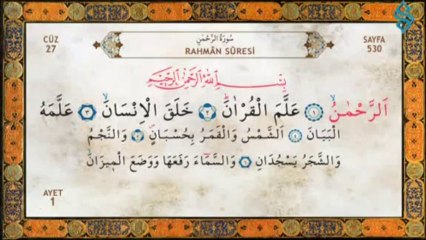 CÜZ
27
سُورَةُ الرَّحْمٰنِ
RAHMÂN SÛRESİ
SAYFA
530
بِسْمِ اللّٰهِ الرَّحْمٰنِ الرَّحِيمِ
اَلرَّحْمٰنُۙ ﴿١﴾ عَلَّمَ الْقُرْاٰنَۜ ﴿٢﴾ خَلَقَ الْاِنْسَانَۙ ﴿٣﴾ عَلَّمَهُ
الْبَيَانَ ﴿٤﴾ اَلشَّمْسُ وَالْقَمَرُ بِحُسْبَانٍۖ ﴿٥﴾ وَالنَّجْمُ
وَالشَّجَرُ يَسْجُدَانِ ﴿٦﴾ وَالسَّمَٓاءَ رَفَعَهَا وَوَضَعَ الْم۪يزَانَۙ
AYET
1